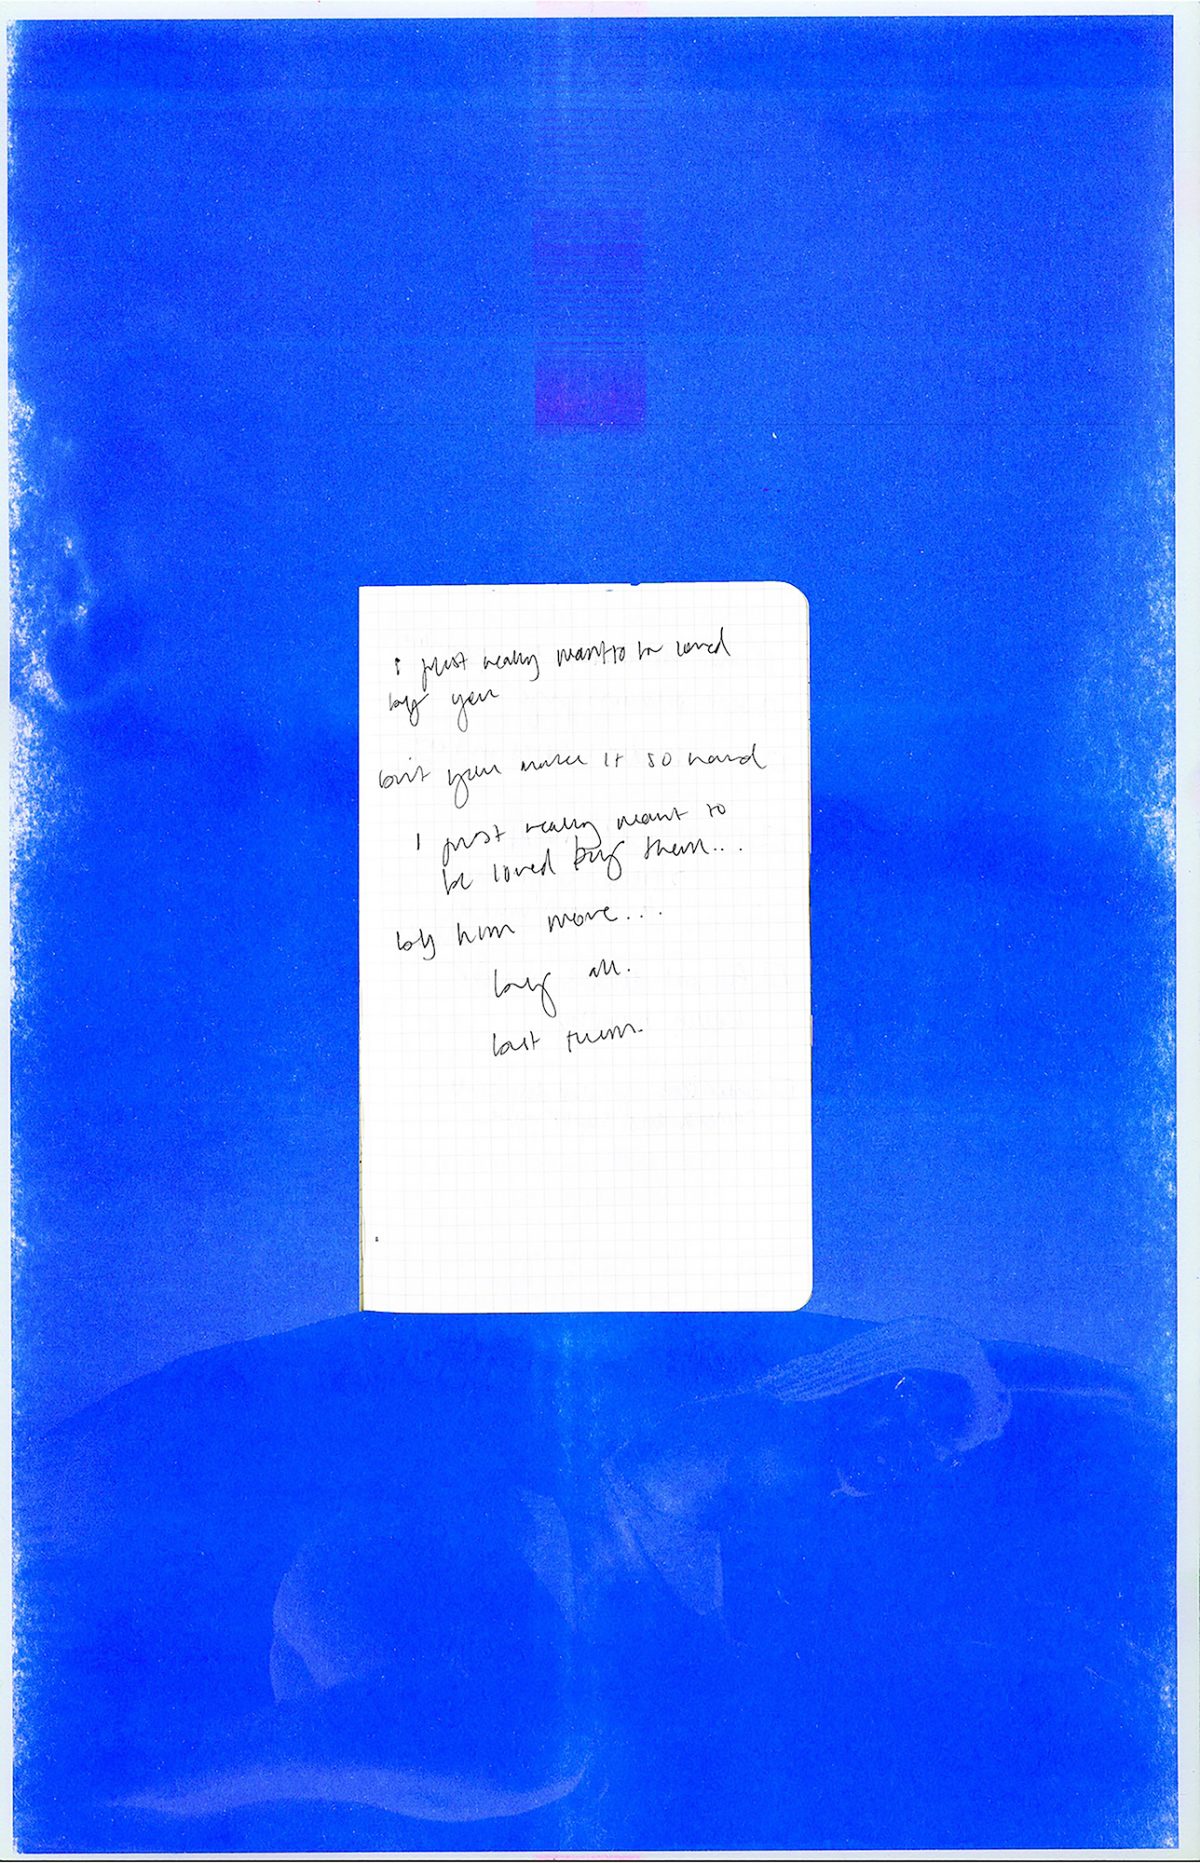 i just really want to be loved
by you
but you make it so hard
I just really want to
be loved by them...
by him more...
by all.
but them.